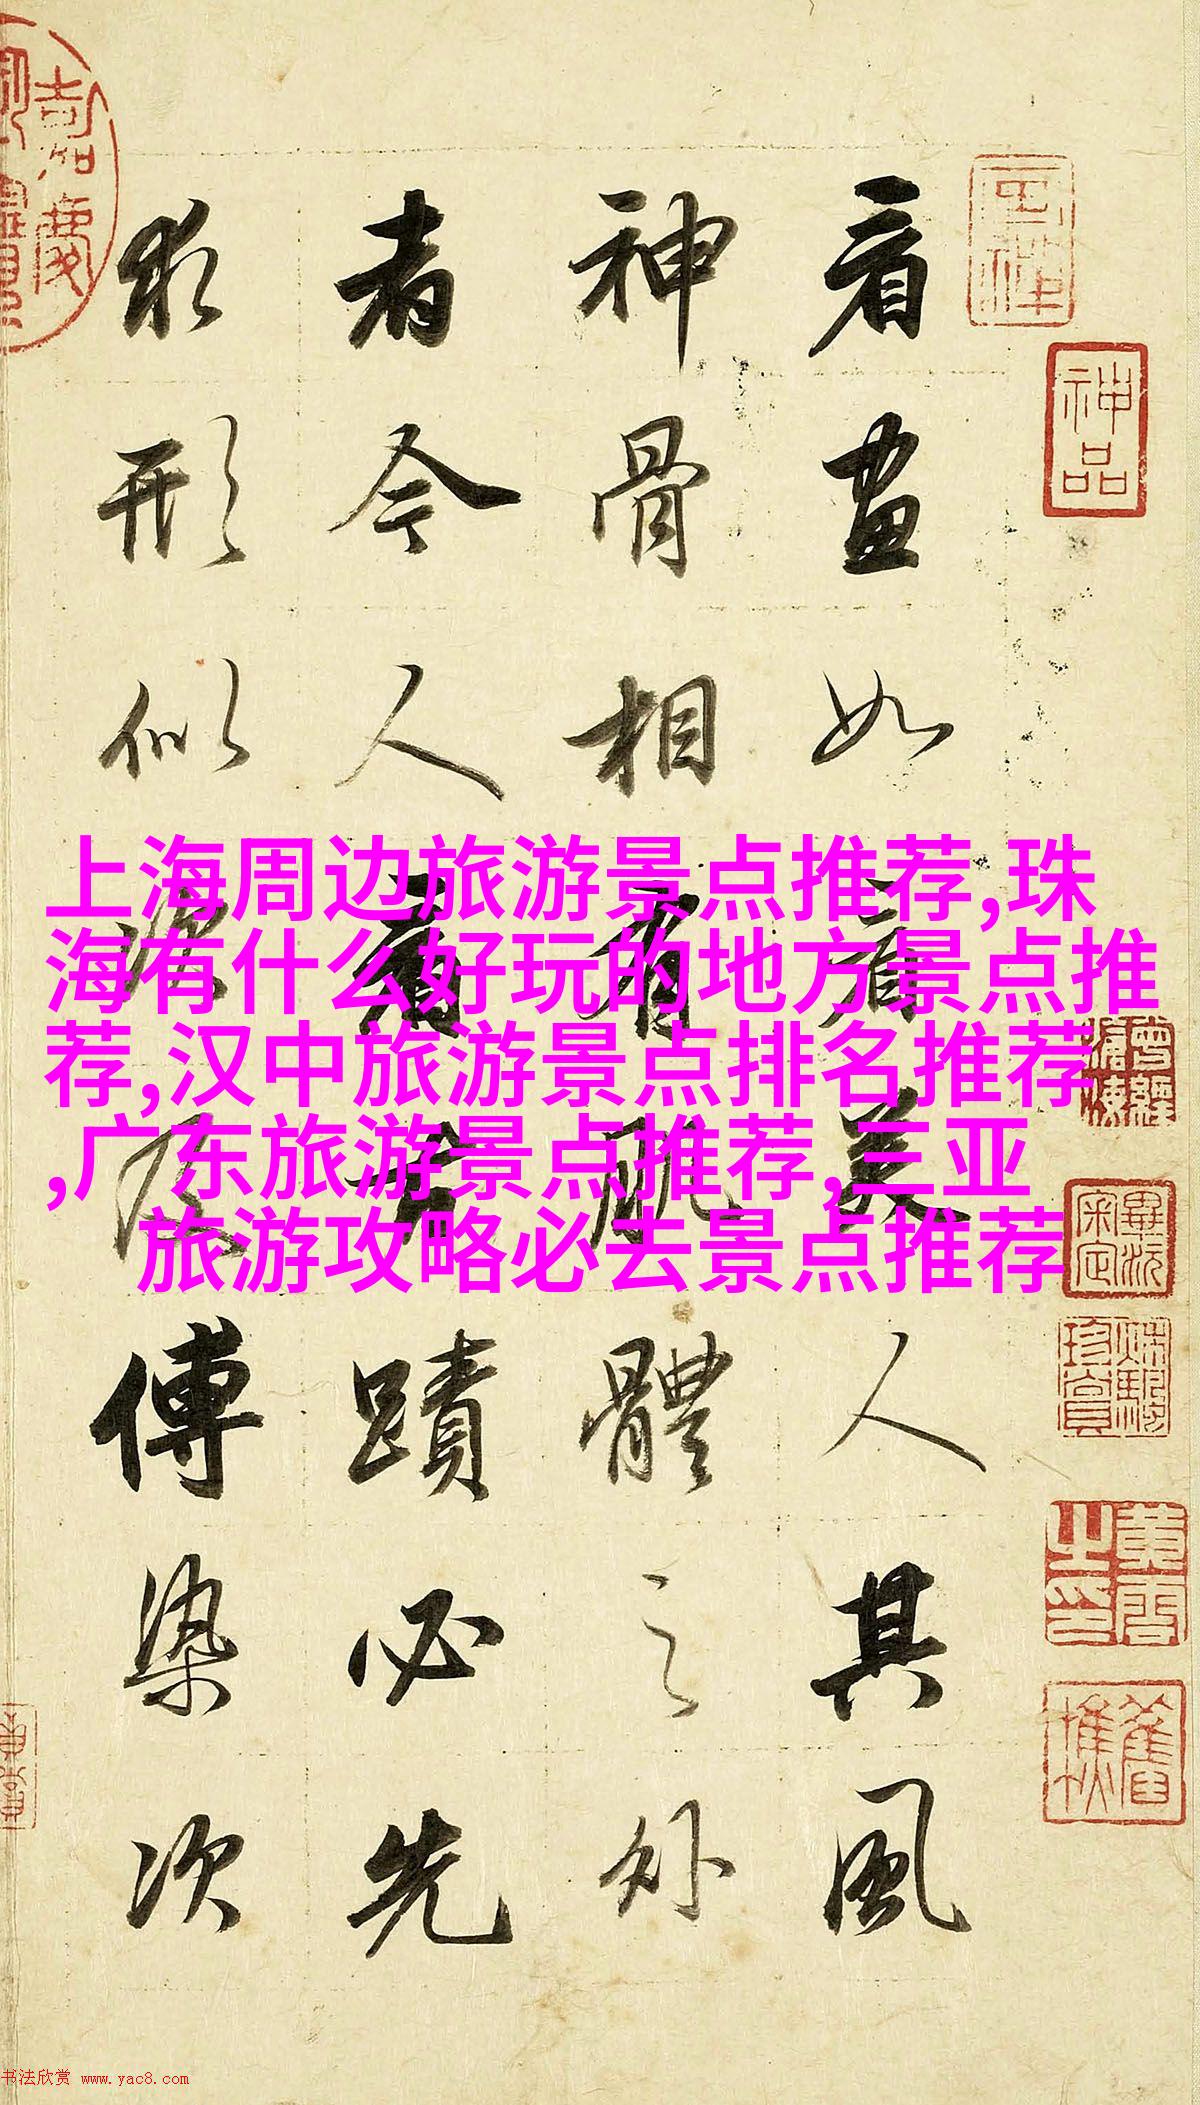 看畫如看美人其風
神骨相有肌體之外
者今人看古蹟必先
求形似次及傅染次
上海周边旅游景点推荐,珠
海有什么好玩的地方景点推
荐,汉中旅游景点排名推荐
,广东旅游景点推荐,三亚
旅游攻略必去景点推荐
神品
畢沅審定
书法欣赏 www.yac8.com